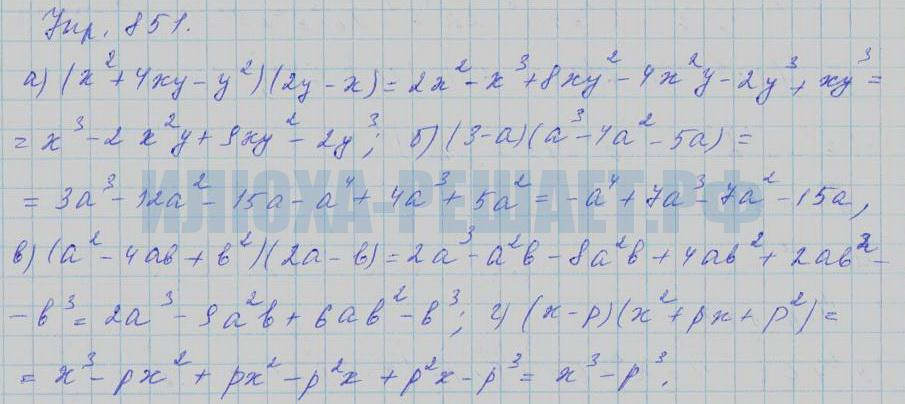 Упр. 851.
а) (x² + 4xy - y²)(2y - x) = 2x² - x³ + 8xy² - 4x²y - 2y³ + xy³ =
= x³ - 2x²y + 9xy² - 2y³; б) (3-a)(a³ - 4a² - 5a) =
= 3a³ - 12a² - 15a - a⁴ + 4a³ + 5a² = -a⁴ + 7a³ - 7a² - 15a,
ИЛЮХА-РЕШАЕТ.РФ
в) (a² - 4ab + b²)(2a - b) = 2a³ - a²b - 8a²b + 4ab² + 2ab² -
- b³ = 2a³ - 9a²b + 6ab² - b³; г) (x - p)(x² + px + p²) =
= x³ - px² + px² - p²x + p²x - p³ = x³ - p³.